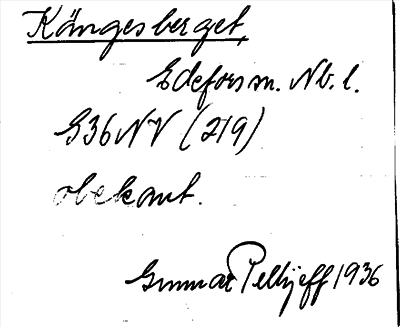 Kångesberget,
Edefors sn. Nb. l.
G36NV (219)
obekant.
Gunnar Pellijeff 1936